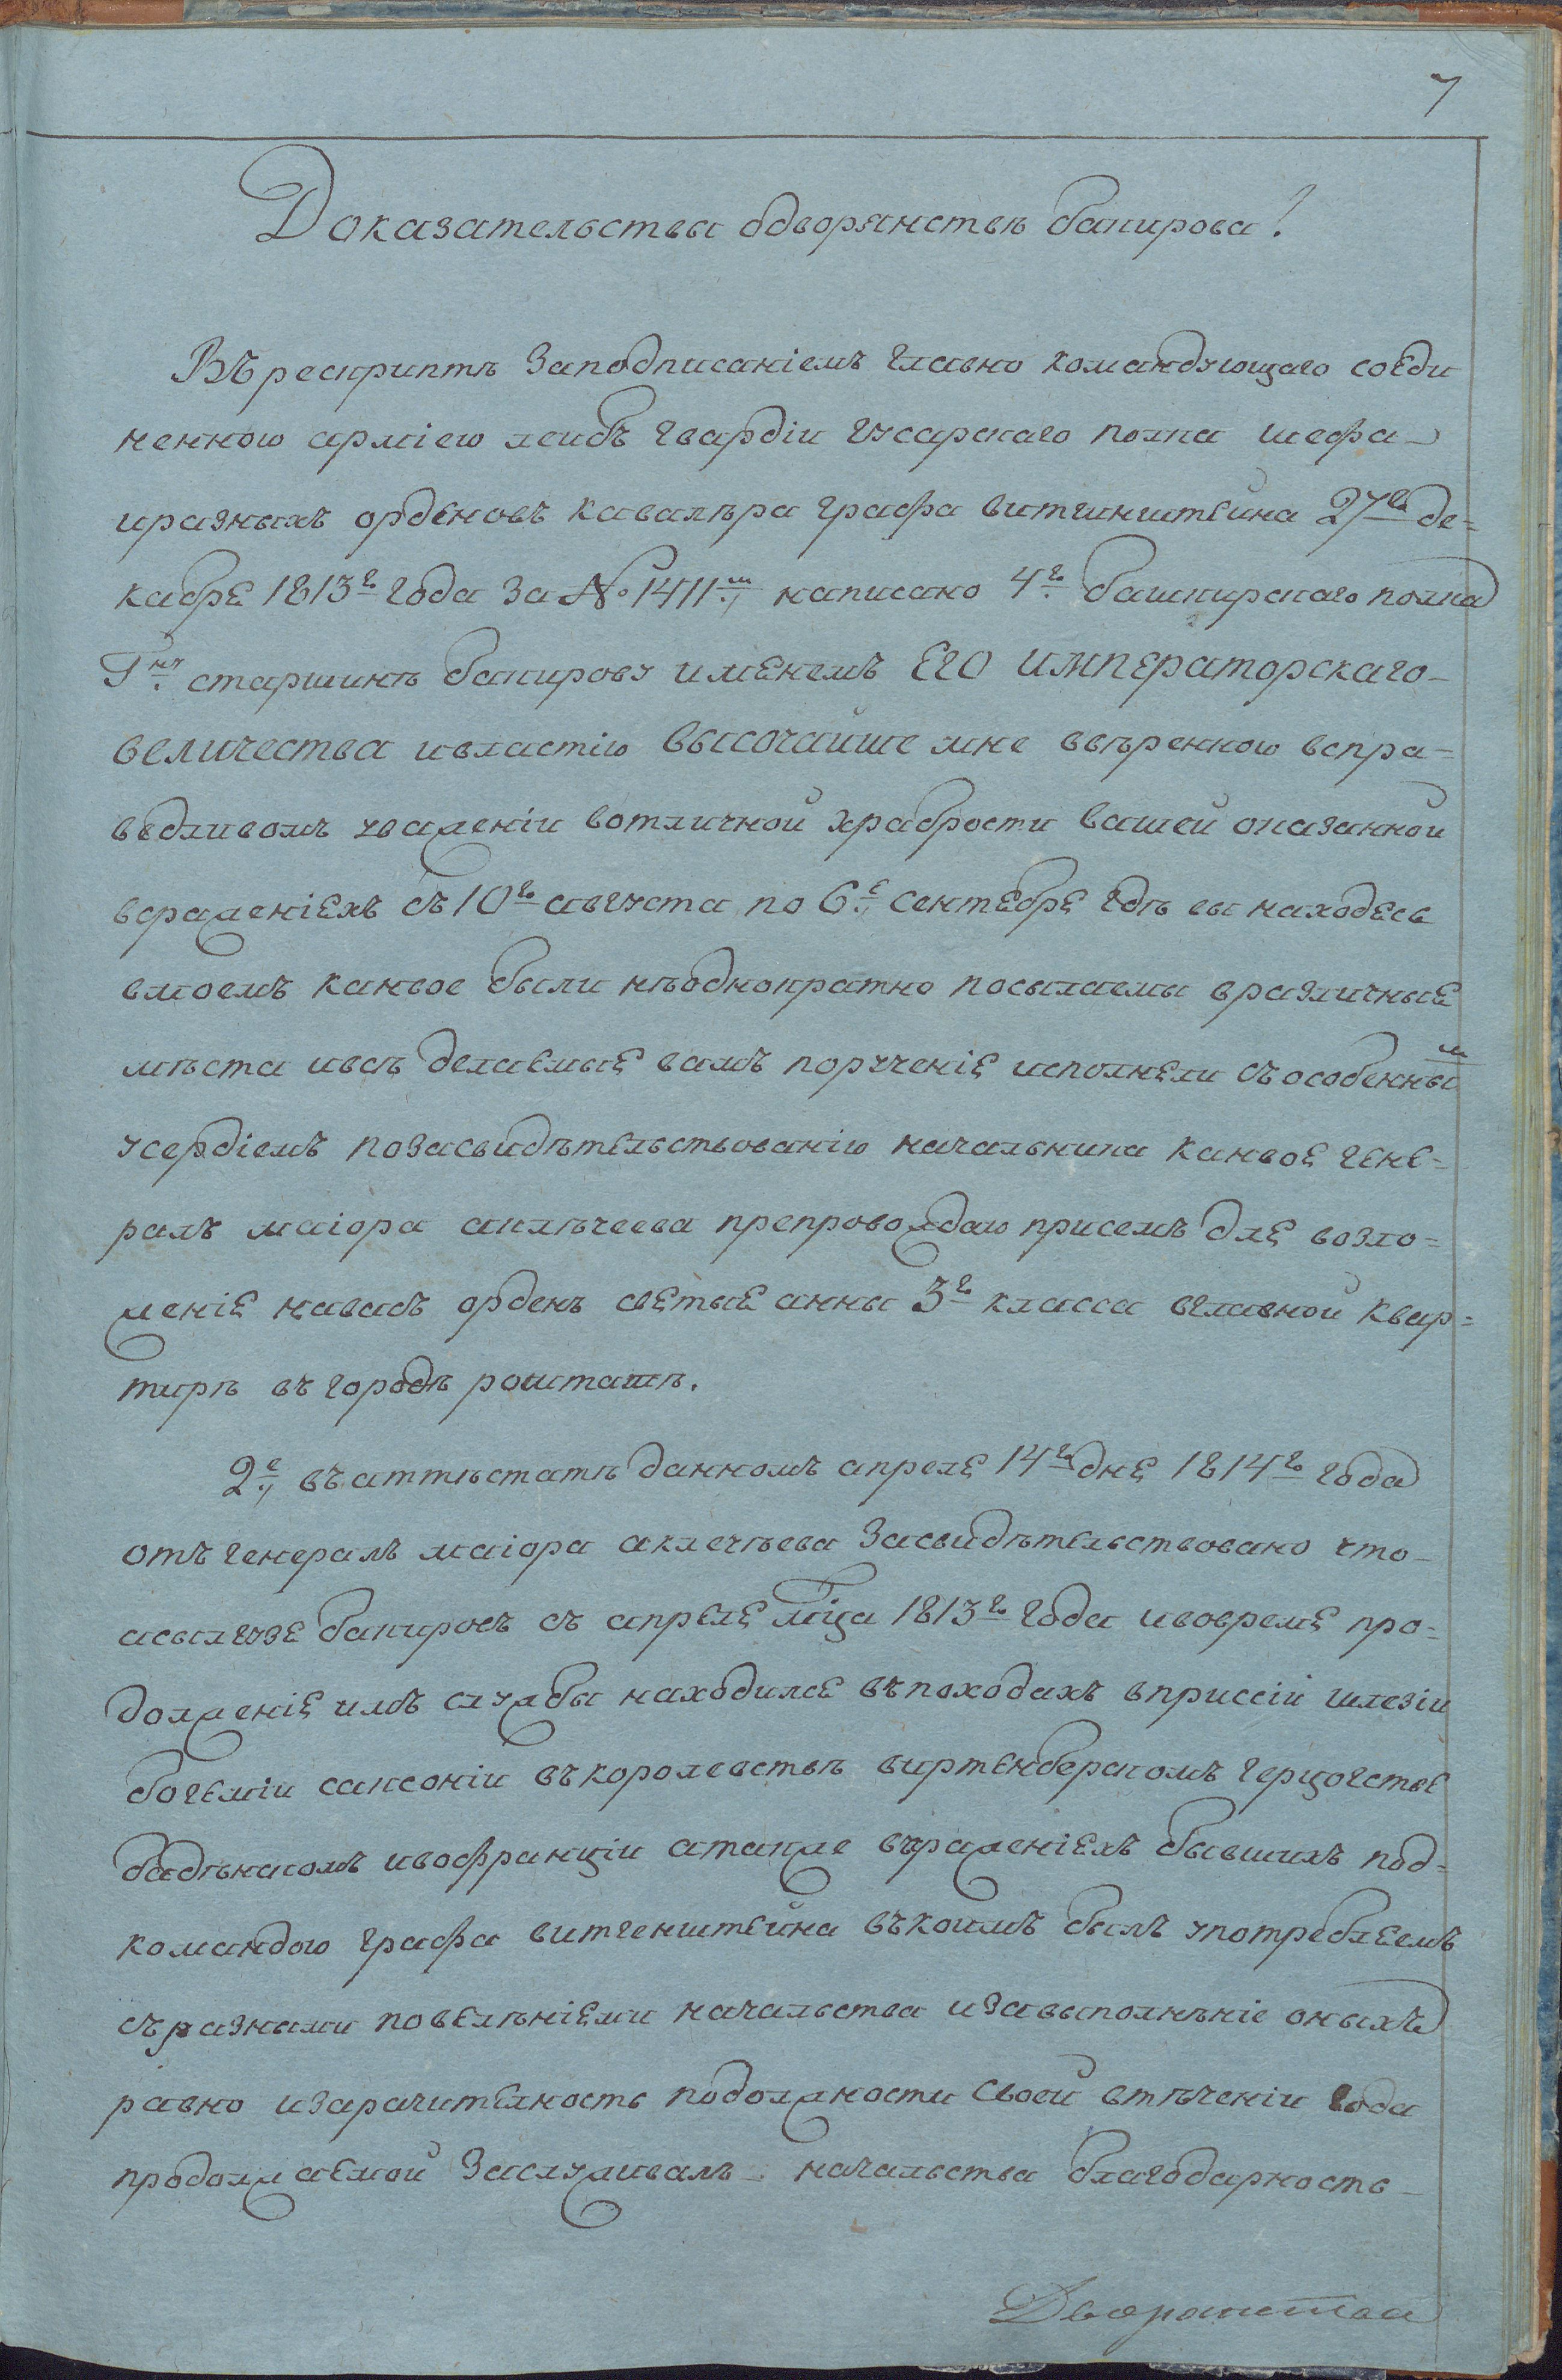 7
Доказательства одворянствѣ бакирова!
Въ рескриптѣ заподписаніемъ главно командующаго соеди
ненною арміею лейбъ гвардіи гусарскаго полка шефа
иразныхъ орденовъ кавалѣра графа витгинштейна 27го де=
кабре 1813го года за № 1411м написано 4го башкирскаго полка
Гну старшинѣ бакирову именемъ ЕГО императорскаго
величества ивластію высочайше мне ввѣренною вспра=
ведливомъ уваженіи вотличной храбрости вашей оказанной
всраженіехъ съ 10го августа по 6е сентебре гдѣ вы находесь
вмоемъ канвое были нѣоднократно посылаемы вразличные
мѣста ивсѣ делаемые вамъ порученіе исполнели съ особенным
усердіемъ позасвидѣтельствованію начальника канвое гене=
ралъ маіора аклѣчеева препровождаю присемъ дле возло=
женіе навасъ орденъ светые анны 3го класса вглавной квар=
тирѣ въ городѣ роштатѣ.
2е въ аттѣстатѣ данномъ апреле 14го дне 1814го года
отъ генералъ маіора аклечѣева засвидѣтельствовано что
асылгузе бакировъ съ апреле мца 1813го года ивовреме про=
долженіе имъ службы находилсе въ походахъ вприссіи шлезіи
богеміи саксоніи въ королевствѣ виртенбергкомъ герцогстве
бадѣнскомъ ивофранціи атакже въ сраженіехъ бывшихъ под=
командою графа витгенштейна въ коимъ былъ употреблеемъ
съ разными повелѣніеми начальства изавыполнѣніе оныхъ
равно изарачителность подолжности своей втѣченіи года
продолжаемой заслуживалъ начальства благодарность
Дворянства